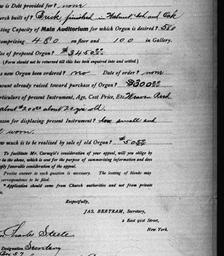 is Debt provided for? none
urch built of? Brick, finished in Walnut Ash and Oak
ting Capacity of Main Auditorium for which Organ is desired? 580
comprising 480 on floor and 100 in Gallery.
ice of proposed Organ? $3450.00
(Form should not be returned till this has been inquired into and settled.)
a new Organ been ordered? no Date of order? none
ount already raised toward purchase of Organ? $300.00
rticulars of present Instrument, Age, Cost Price, Etc.
about
ason for displacing present Instrument? too small and
worn.
w much is to be realized by sale of old Organ? $50.00
To facilitate Mr. Carnegie's consideration of your appeal, will you oblige by
in the above, which is used for the purpose of summarizing information and does
ply favorable consideration of the appeal.
Precise answer to each question is necessary. The leaving of blanks may
correspondence to be placed.
Application should come from Church authorities and not from private
Respectfully,
JAS. BERTRAM, Secretary,
2 East 91st Street,
New York.
Steele
Designation Secretary